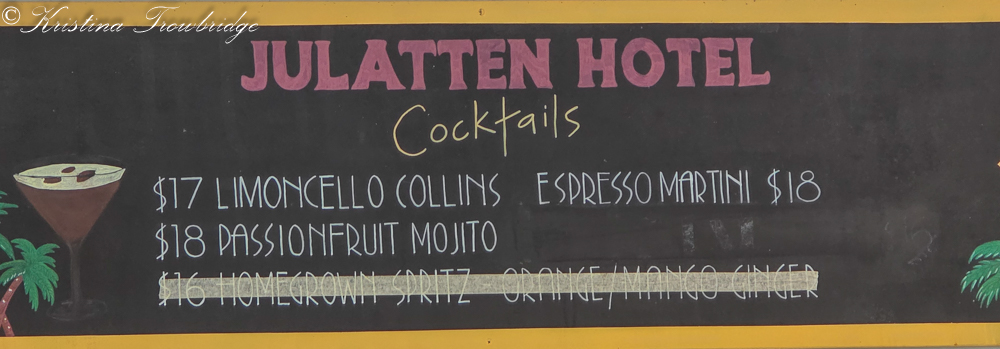 © Kristina Trowbridge
JULATTEN HOTEL
Cocktails
$17 LIMONCELLO COLLINS ESPRESSO MARTINI $18
$18 PASSIONFRUIT MOJITO
$16 HOMEGROWN SPRITZ ORANGE/MANGO GINGER